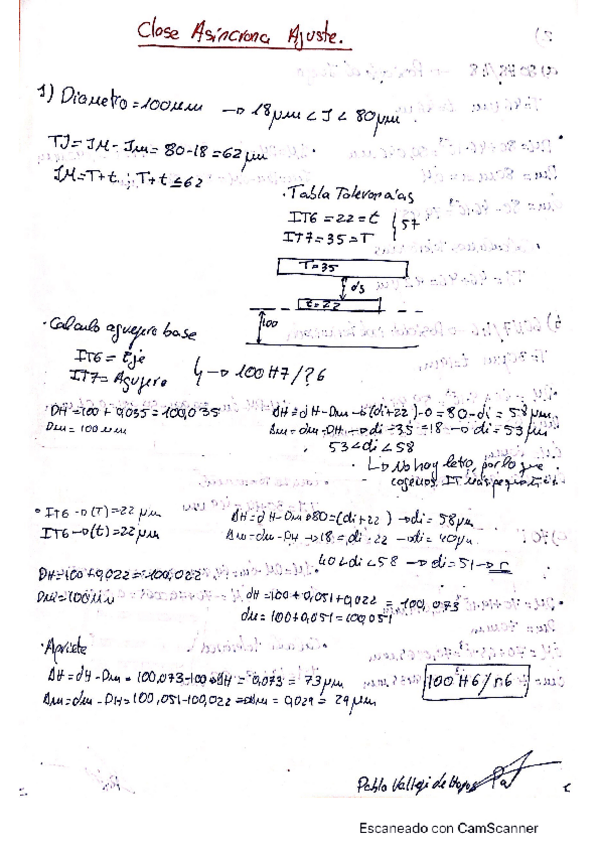 Clase Asíncrona Ajuste.
1) Diametro = 100 mm → 18 μm < J < 80 μm
TJ = JM - Jm = 80 - 18 = 62 μm
JM = T + t ; T + t ≤ 62
· Tabla Tolerancias
IT6 = 22 = t
IT7 = 35 = T
57
T = 35
di
t = 22
100
· Calculo agujero base
IT6 = Eje
IT7 = Agujero
→ 100 H7/?6
DH = 100 + 0,035 = 100,035
Dm = 100 mm
AH = dH - Dm → (di + 22) - 0 = 80 - di = 58 μm
Am = dm - DH → di - 35 = 18 → di = 53 μm
53 < di < 58
↳ No hay letra, por lo que
cogemos IT más pequeña
· IT6 → (T) = 22 μm
IT6 → (t) = 22 μm
AH = dH - Dm → 80 = (di + 22) → di = 58 μm
Am = dm - DH → 18 = di - 22 → di = 40 μm
40 < di < 58 → di = 51 → r
DH = 100 + 0,022 = 100,022
Dm = 100 mm
dH = 100 + 0,051 + 0,022 = 100,073
dm = 100 + 0,051 = 100,051
· Apriete
AH = dH - Dm = 100,073 - 100 → AH = 0,073 = 73 μm
Am = dm - DH = 100,051 - 100,022 → Am = 0,029 = 29 μm
100 H6/r6
Pablo Vallejo de Hoyos
Escaneado con CamScanner